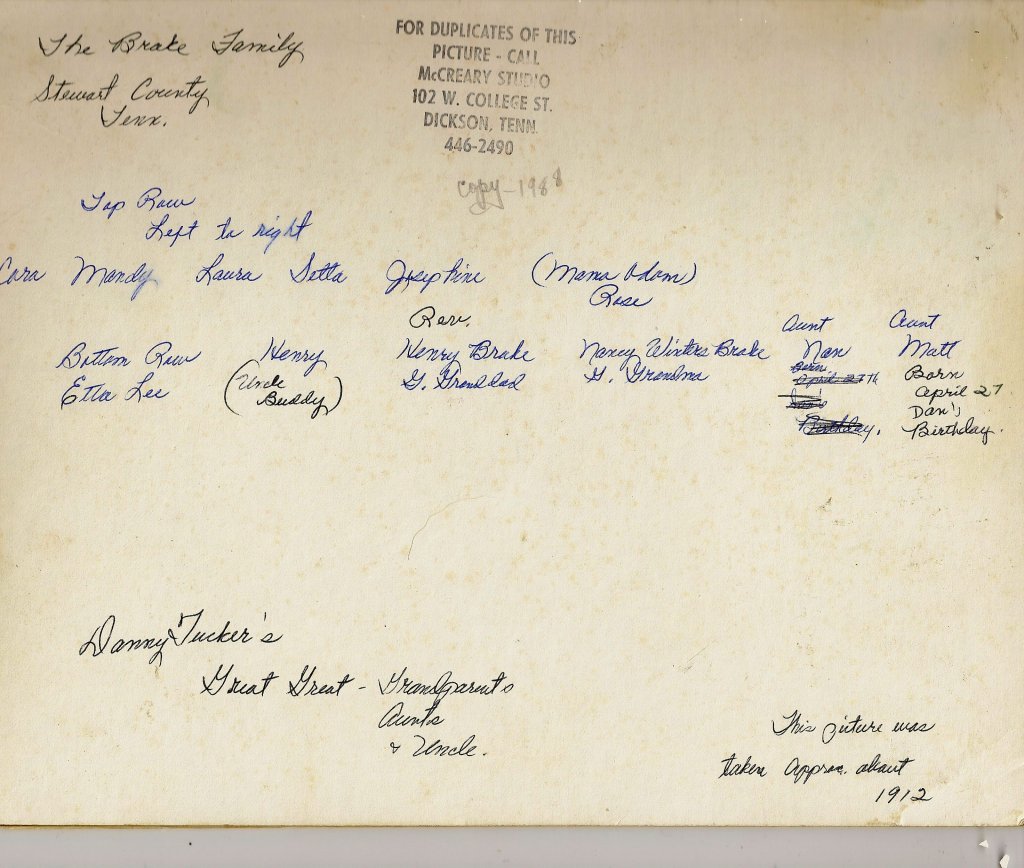 The Brake Family
Stewart County
Tenn.
FOR DUPLICATES OF THIS
PICTURE - CALL
McCREARY STUDIO
102 W. COLLEGE ST.
DICKSON, TENN.
446-2490
copy - 1988
Top Row
Left to right
Cora Mandy Laura Setta Josephine (Mama Odom)
Rose
Rev.
Aunt Aunt
Bottom Row Henry Henry Brake Nancy Winters Brake Nan Matt
Etta Lee (Uncle Buddy) G. Granddad G. Grandma Born Born
April 27th April 27
Dan's
Birthday. Birthday.
Danny Tucker's
Great Great - Grandparents
Aunts
& Uncle.
This picture was
taken approx. about
1912